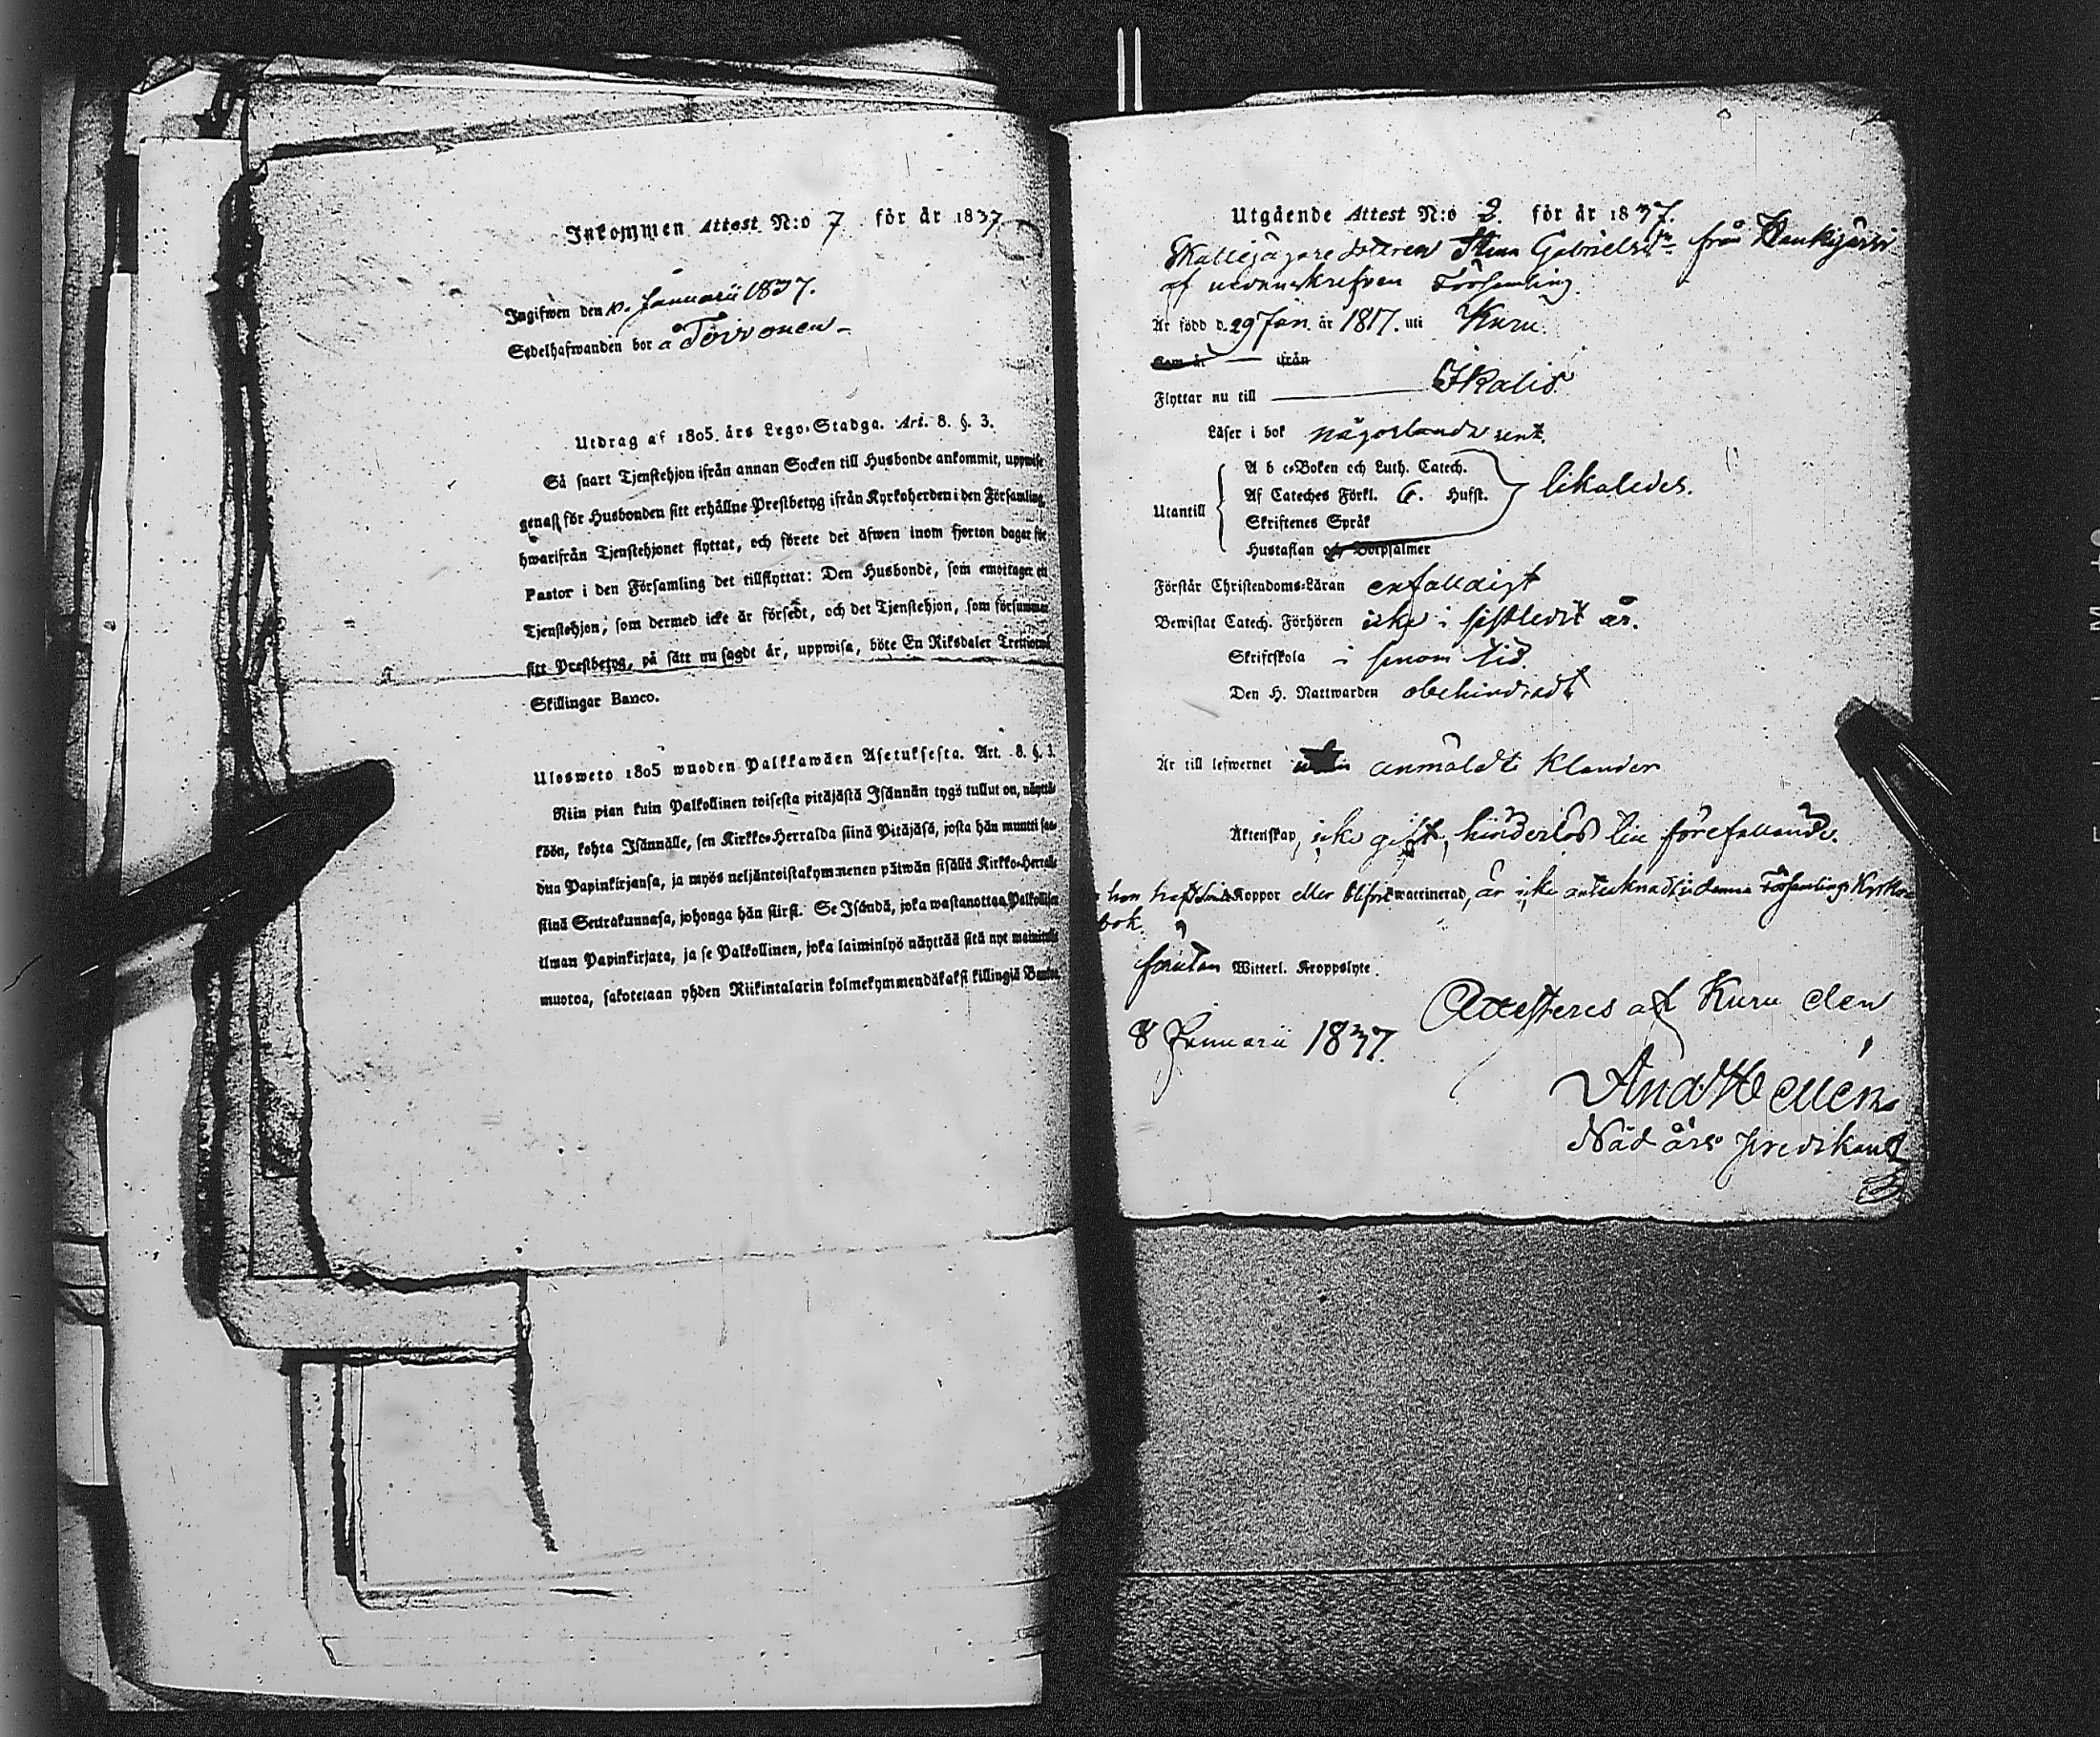 Inkommen Attest N:o 7 för år 1837
Ingifwen den 10. Januarii 1837.
Sedelhafwanden bor å Toivonen
Utdrag af 1805. års Lego-Stadga. Art. 8. §. 3.
Så snart Tjenstehjon ifrån annan Socken till Husbonde ankommit, uppwise
genast för Husbonden sitt erhållne Prestbetyg ifrån Kyrkoherden i den Församling
hwarifrån Tjenstehjonet flyttat, och förete det äfwen inom fjorton dagar för
Pastor i den Församling det tillflyttat: Den Husbonde, som emottager ett
Tjenstehjon, som dermed icke är försedt, och det Tjenstehjon, som försummar
sitt Prestbetyg, på sätt nu sagdt är, uppwisa, böte En Riksdaler
Skillingar Banco.
Ulosweto 1805 wuoden Palkkawäen Asetuksesta. Art. 8. §. 3.
Niin pian kuin Palkollinen toisesta pitäjästä Isännän tygö tullut on, näyttä-
köön, kohta Isännälle, sen Kirkko-Herralda siinä Pitäjäsä, josta hän muutti saa-
dun Papinkirjansa, ja myös neljäntoistakymmenen päiwän sisällä Kirkko-Herralle
siinä Seurakunnasa, johonga hän siirsi. Se Isändä, joka wastanottaa Palkollisen
ilman Papinkirjata, ja se Palkollinen, joka laiminlyö näyttää sitä nyt mainitulla
muotoa, sakotetaan yhden Riikintalarin kolmekymmendäkaksi killingiä Bankos
Utgående Attest N:o 2. för år 1837.
Gabrielsdr från
af Församling.
Är född d. 29 Jan. år 1817. uti Kuru.
Kom år — ifrån
Flyttar nu till Ikalis
Läser i bok någorlunda rent.
A b c-Boken och Luth. Catech.
Af Cateches Förkl. 6. Hufst. likaledes.
Utantill
Skriftenes Språk
Hustaflan och Botpsalmer
Förstår Christendoms-Läran enfaldigt
Bewistat Catech. Förhören icke i sistledit år.
Skriftskola i sinom tid.
Den H. Nattwarden obehindradt
Är till lefwernet utan anmäldt klander
Äktenskap, icke gift, hinderlös till förefallande.
hon haft Koppor eller blifwit waccinerad, är icke antecknadt i denna Församlings Kyrko
bok.
förutan Witterl. Kroppslyte.
Attesteres af Kuru den
8 Januarii 1837.
And Hellén
Nådårs predikant